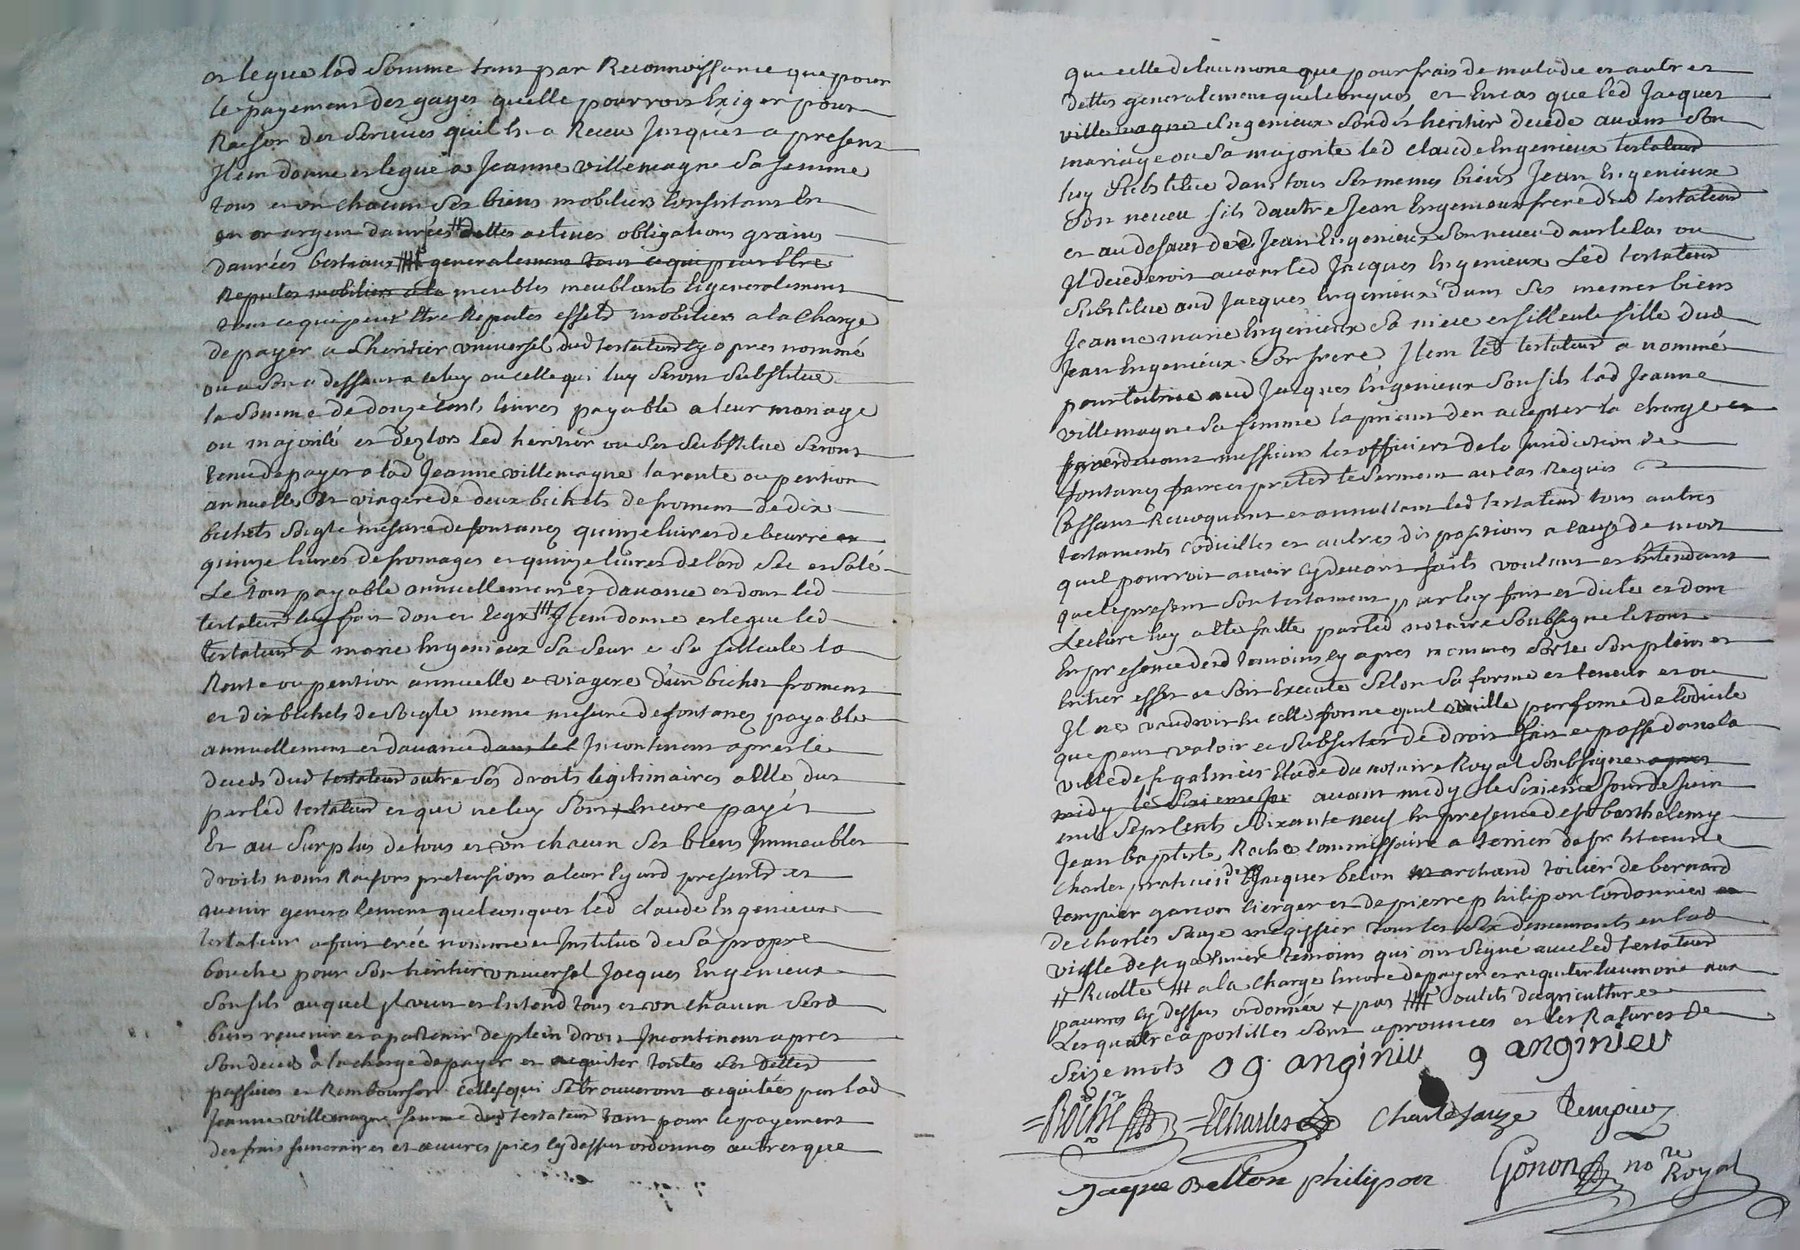 et legue lad somme tant par Reconnoissance que pour
le payement des gages quelle pourroit Exiger pour
Raison des services quil En a Receu Jusques a present
Item donne et legue a Jeanne villemagne sa femme
tous et un chacun ses biens mobiliers Consistans En
en or argent danrées # dettes actives obligations grains
danrées bestiaux #### generalement tout ce qui peut Etre
Reputes mobiliers a la meubles meublants et generalement
tout ce qui peut Etre Reputes effets mobiliers a la Charge
de payer a Lheritier universel dud testateur cy apres nommé
ou a son deffaut a celuy ou celle qui luy seront substitue
la somme de douze Cents livres payable a leur mariage
ou majorité et dez lors led heritier ou ses substitue seront
tenu de payer a lad Jeanne villemagne la rente ou pention
annuelle et viagere de deux bichets de froment de dix
bichets seigle mesure de fontanez quinze livres de beurre et
quinze livres de fromages et quinze livres de lard sec et salé
Le tout payable annuellement et davance et dont led
testateur luy fait don et legs ### Item donne et legue led
testateur a marie Engenieux sa seur et sa filleule la
Rente ou pention annuelle et viagere d'un bichet froment
et dix bichets de seigle meme mesure de fontanez payable
annuellement et davance dans led Incontinent apres le
deceds dud testateur outre ses droits legitimaires a Elle dus
par led testateur et qui ne luy sont + Encore payés
Et au surplus de tous et un chacun ses biens Immeubles
droits noms Raisons pretensions a leur Egard presents et
avenir generalement quelconques led Claude Engenieux
testateur a fait créé nommé et Institué de sa propre
bouche pour son heritier universel Jacques Engenieux
son fils auquel Il veut et Entend tous et un chacun sesd
biens revenir et apartenir de plein droit Incontinent apres
son deceds a la charge de payer et acquiter toutes ses dettes
passives et Rembourser celles qui se trouveront acquitées par lad
Jeanne villemagne femme dud testateur tant pour le payement
des frais funeraires et œuvres pies cy dessus ordonnes autres que
que celle de laumone que pour frais de maladie et autres
dettes generalement quelconques et En cas que led Jacques
villemagne Engenieux sondit heritier decede avant son
mariage ou sa majorite led claude Engenieux testateur
luy substitue dans tous ses memes biens Jean Engenieux
son neveu fils dautre Jean Engenieux frere dud testateur
et au defaut dud Jean Engenieux son neveu dans le cas ou
Il decederoit avant led Jacques Engenieux Led testateur
substitue aud Jacques Engenieux dans ses memes biens
Jeanne marie Engenieux sa niece et filleule fille dud
Jean Engenieux son frere Item led testateur a nommé
pour tutrice aud Jacques Engenieux son fils lad Jeanne
villemagne sa femme la priant den accepter la charge et
devant messieurs les officiers de la Juridiction de
fontanez faire et preter le serment au cas Requis
Cassant Revoquant et annullant led testateur tous autres
testaments codicilles et autres dispositions a cause de mort
quil pourroit avoir cy devant faits voulant et Entendant
que le present son testament par luy fait et dicté et dont
Lecture luy a Eté faitte par led notaire soubsigne le tout
En presence desd temoins cy apres nommes sorte son plein et
Entier effet et soit Execute selon sa forme et teneur et ou
Il ne vaudroit En celle forme quil vaille par forme de codicile
que peut valoir et subsister de droit fait et passé dans la
ville de st galmier Etude du notaire Royal soubsigne apres
midy le sixieme Jo avant midy le sixieme Jour de Juin
mil sept Cents soixante neuf En presence de sr barthelemy
Jean baptiste Roche Commissaire a terrier de sr
Charles praticien de Jacques belon marchand toilier de bernard
tempier garcon cierger et de pierre philipon Cordonnier et
de Charles sauze megissier tous les six demeurants en lad
ville de st galmier temoins qui ont signé avec led testateur
# Recolte ## a la charge Encore de payer et acquiter laumone aux
pauvres cy dessus ordonnée + pas #### outils dagriculture
Les quatre apostilles sont aprouvées et les Rasures de
seize mots ag anginieu g anginieu
=Roche =Charles Charle sauze Tempier
Jaque Bellon philipon Gonon nore Royal